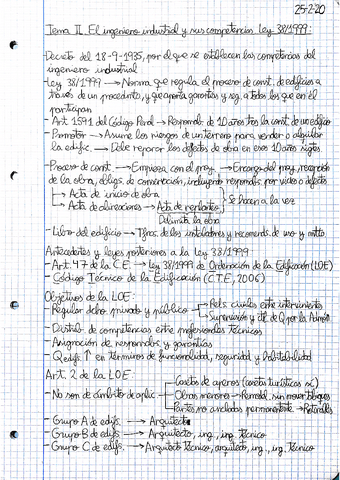 25-2-20
Tema II. El ingeniero industrial y sus competencias Ley 38/1999:
-Decreto del 18-9-1935, por el que se establecen las competencias del
ingeniero industrial
-Ley 38/1999 → Norma que regula el proceso de const. de edificios a
través de un procedmto, y que aporta garantías y seg. a todos los que en él
participan
-Art. 1591 del Código Penal → Respondab. de 10 años tras la const. de un edificio
-Promotor → Asume los riesgos de un terreno para vender o alquilar
la edific. → Debe reparar los defectos de obra en esos 10 años sigtes
-Proceso de const. → Empieza con el proy. → Encargo del proy., recepción
de la obra, obligs. de conservación, incluyendo respondabs. por vicios o defectos
→ Acta de inicio de obra
→ Acta de alineaciones → Acta de replanteo } Se hacen a la vez
Delimita la obra
-Libro del edificio → Tfnos. de los instaladores y recomends. de uso y mntto
Antecedentes y leyes posteriores a la Ley 38/1999
-Art. 47 de la C.E. → Ley 38/1999 de Ordenación de la Edificación (LOE)
-Código Técnico de la Edificación (C.T.E., 2006)
Objetivos de la LOE:
-Regular dcho. privado y público → Rels. civiles entre intervinientes
→ Supervisión y ctrl. de Q por la Admón
-Distrib. de competencias entre profesionales técnicos
-Asignación de respondabs. y garantías
-Q edifs. ↑ en términos de funcionalidad, seguridad y habitabilidad
Art. 2 de la LOE:
-No son de ámbito de aplic. → Casetas de aperos (casetas turísticas sí)
→ Obras menores → Remodel. sin mover bloques
→ Partes no ancladas permanentmte →
-Grupo A de edifs. → Arquitecto
-Grupo B de edifs. → Arquitecto, ing., ing. técnico
-Grupo C de edifs. → Arquitecto técnico, arquitecto, ing., ing. técnico